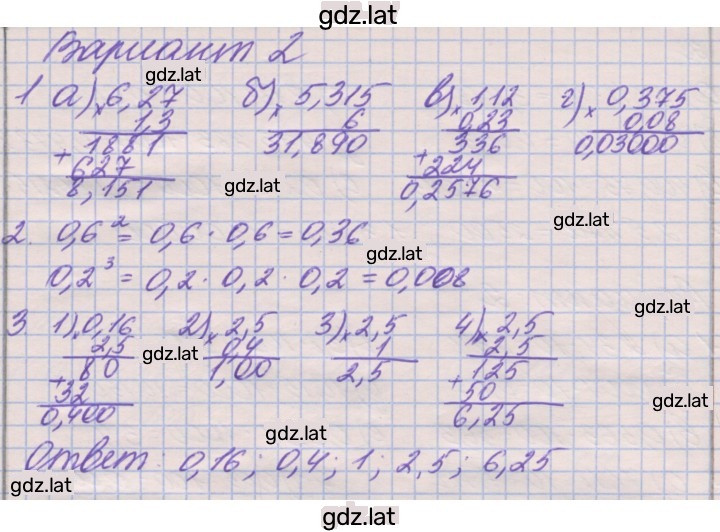 gdz.lat
Вариант 2
gdz.lat
1 а) × 6,27 б) × 5,315 в) × 1,12 г) × 0,375
1,3 6 0,23 0,08
1881 31,890 336 0,03000
+ 627 + 224
8,151 0,2576
gdz.lat
gdz.lat
2. 0,6² = 0,6 · 0,6 = 0,36
gdz.lat
0,2³ = 0,2 · 0,2 · 0,2 = 0,008
gdz.lat
3 1) × 0,16 2) × 2,5 3) × 2,5 4) × 2,5
2,5 0,4 1 2,5
gdz.lat
80 1,00 2,5 125
+ 32 + 50
0,400 6,25
gdz.lat
gdz.lat
Ответ: 0,16; 0,4; 1; 2,5; 6,25
gdz.lat
gdz.lat